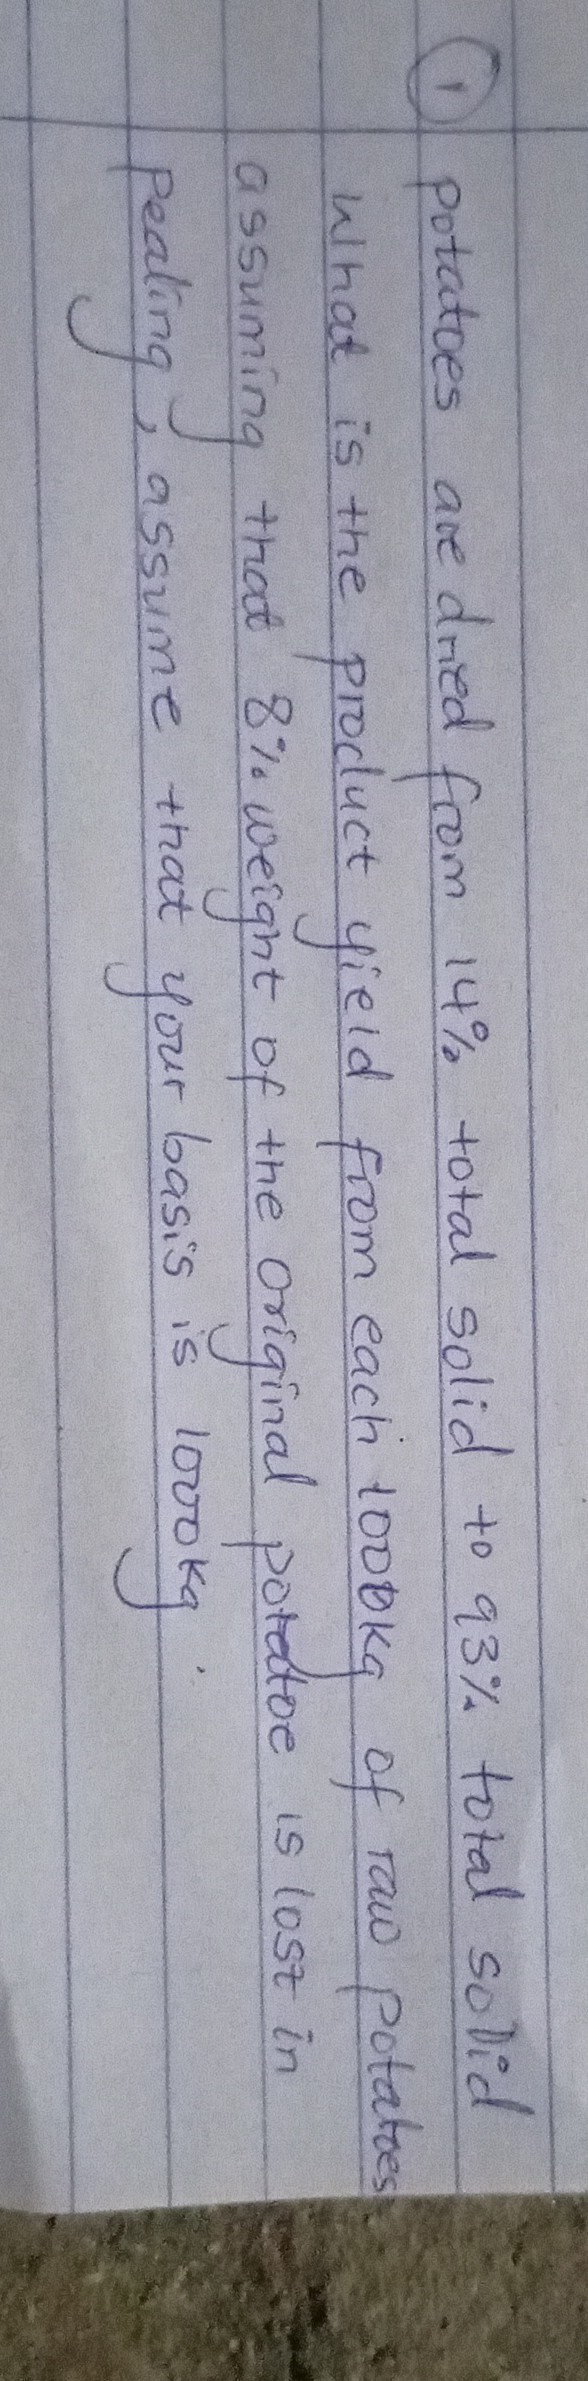 1
potatoes are dried from 14% total solid to 93% total solid
What is the product yield from each 1000kg of raw potatoes
assuming that 8% weight of the original potatoe is lost in
pealing, assume that your basis is 1000kg.